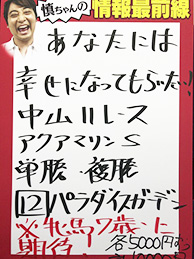 慎ちゃんの
情報最前線
あなたには
幸せになってもらいたい!
中山11レース
アクアマリンS
単勝・複勝
12パラダイスガーデン
※牝馬7歳に
期待
各5000円ずつ